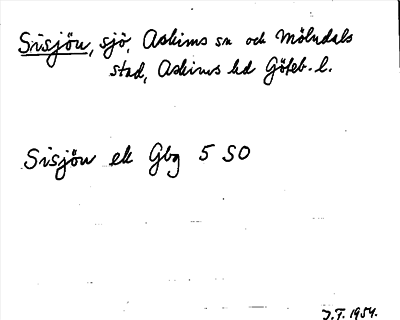 Sisjön, sjö, Askims sn och Mölndals
stad, Askims hd Göteb. l.
Sisjön ek Gbg 5 SO
J.F. 1954.